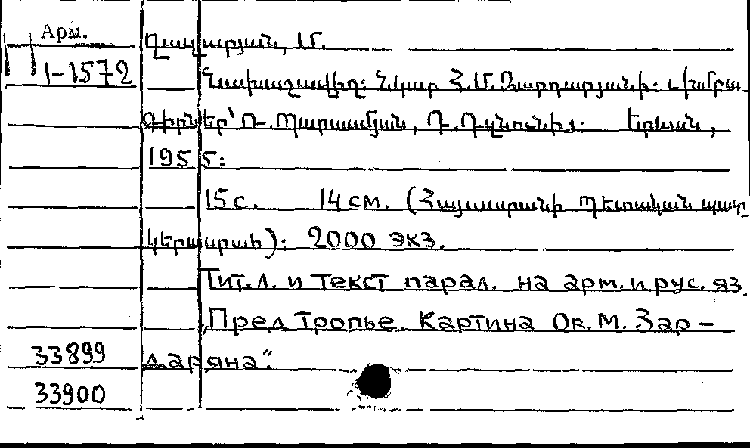 Арм.
1-1572
Ղազարյան, Մ.
Նախաշավիղ: Նկար Հ.Մ.Զարդարյանի: Խմբա-
գիրներ՝ Ռ. Պարսամյան, Դ.
Երևան,
1955:
15 с. 14 см. (Հայաստանի պետական պատ-
կերասրահ): 2000 экз.
Тит.л. и текст парал. на арм. и рус. яз.
"Предтропье. Картина Ов. М. Зар-
даряна".
33899
33900